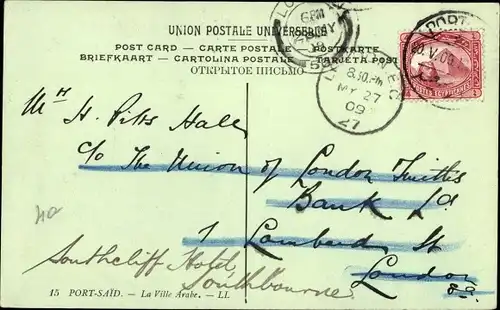 UNION POSTALE UNIVERSELLE
POST CARD — CARTE POSTALE — POSTKARTE
BRIEFKAART — CARTOLINA POSTALE — TARJETA POST
ОТКРЫТОЕ ПИСЬМО
PORT
20.V.09
6 PM
MY
8.30 PM
MY 27
09
27
Mr H. Pitts Hall
C/o The Union of London Smiths
Bank Ld
1 Lombard St
London
Southcliff Hotel,
Southbourne.
15 PORT-SAÏD. — La Ville Arabe. — LL